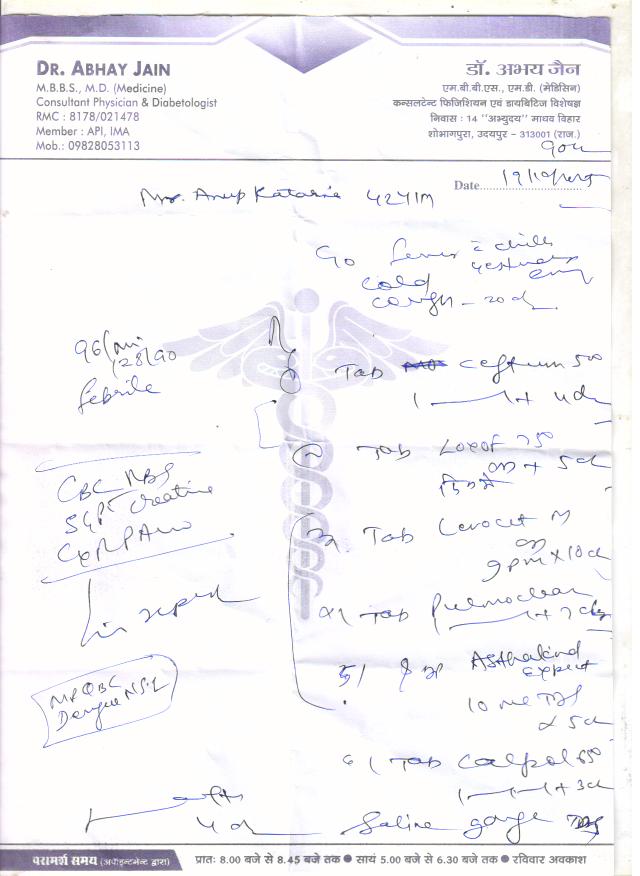 DR. ABHAY JAIN
M.B.B.S., M.D. (Medicine)
Consultant Physician & Diabetologist
RMC : 8178/021478
Member : API, IMA
Mob.: 09828053113
डॉ. अभय जैन
एम.बी.बी.एस., एम.डी. (मेडिसिन)
कन्सलटेन्ट फिजिशियन एवं डायबिटिज विशेषज्ञ
निवास : 14 "अभ्युदय" माधव विहार
शोभागपुरा, उदयपुर – 313001 (राज.)
Date
Mr. Anup Kataria 42Y/M
c/o fever c chills
cold
cough - 20d
96/min
128/90
febrile
Tab ceftum 500
1 1 + 4d
Tab Loxof 750
OD + 5d
CBC MBS
SGPT Creatine
CXR PA
Tab Levocet M
9 pm x 10d
Tab Pulmoclear
+ 7d
Asthakind
Expect
10 ml TDS
x 5d
MP QBC
Dengue NS1
6) Tab Calpol 650
1 1 1 + 3d
4d
Saline gargle TDS
परामर्श समय (अपॉइन्टमेन्ट द्वारा)
प्रातः 8.00 बजे से 8.45 बजे तक ● सायं 5.00 बजे से 6.30 बजे तक ● रविवार अवकाश